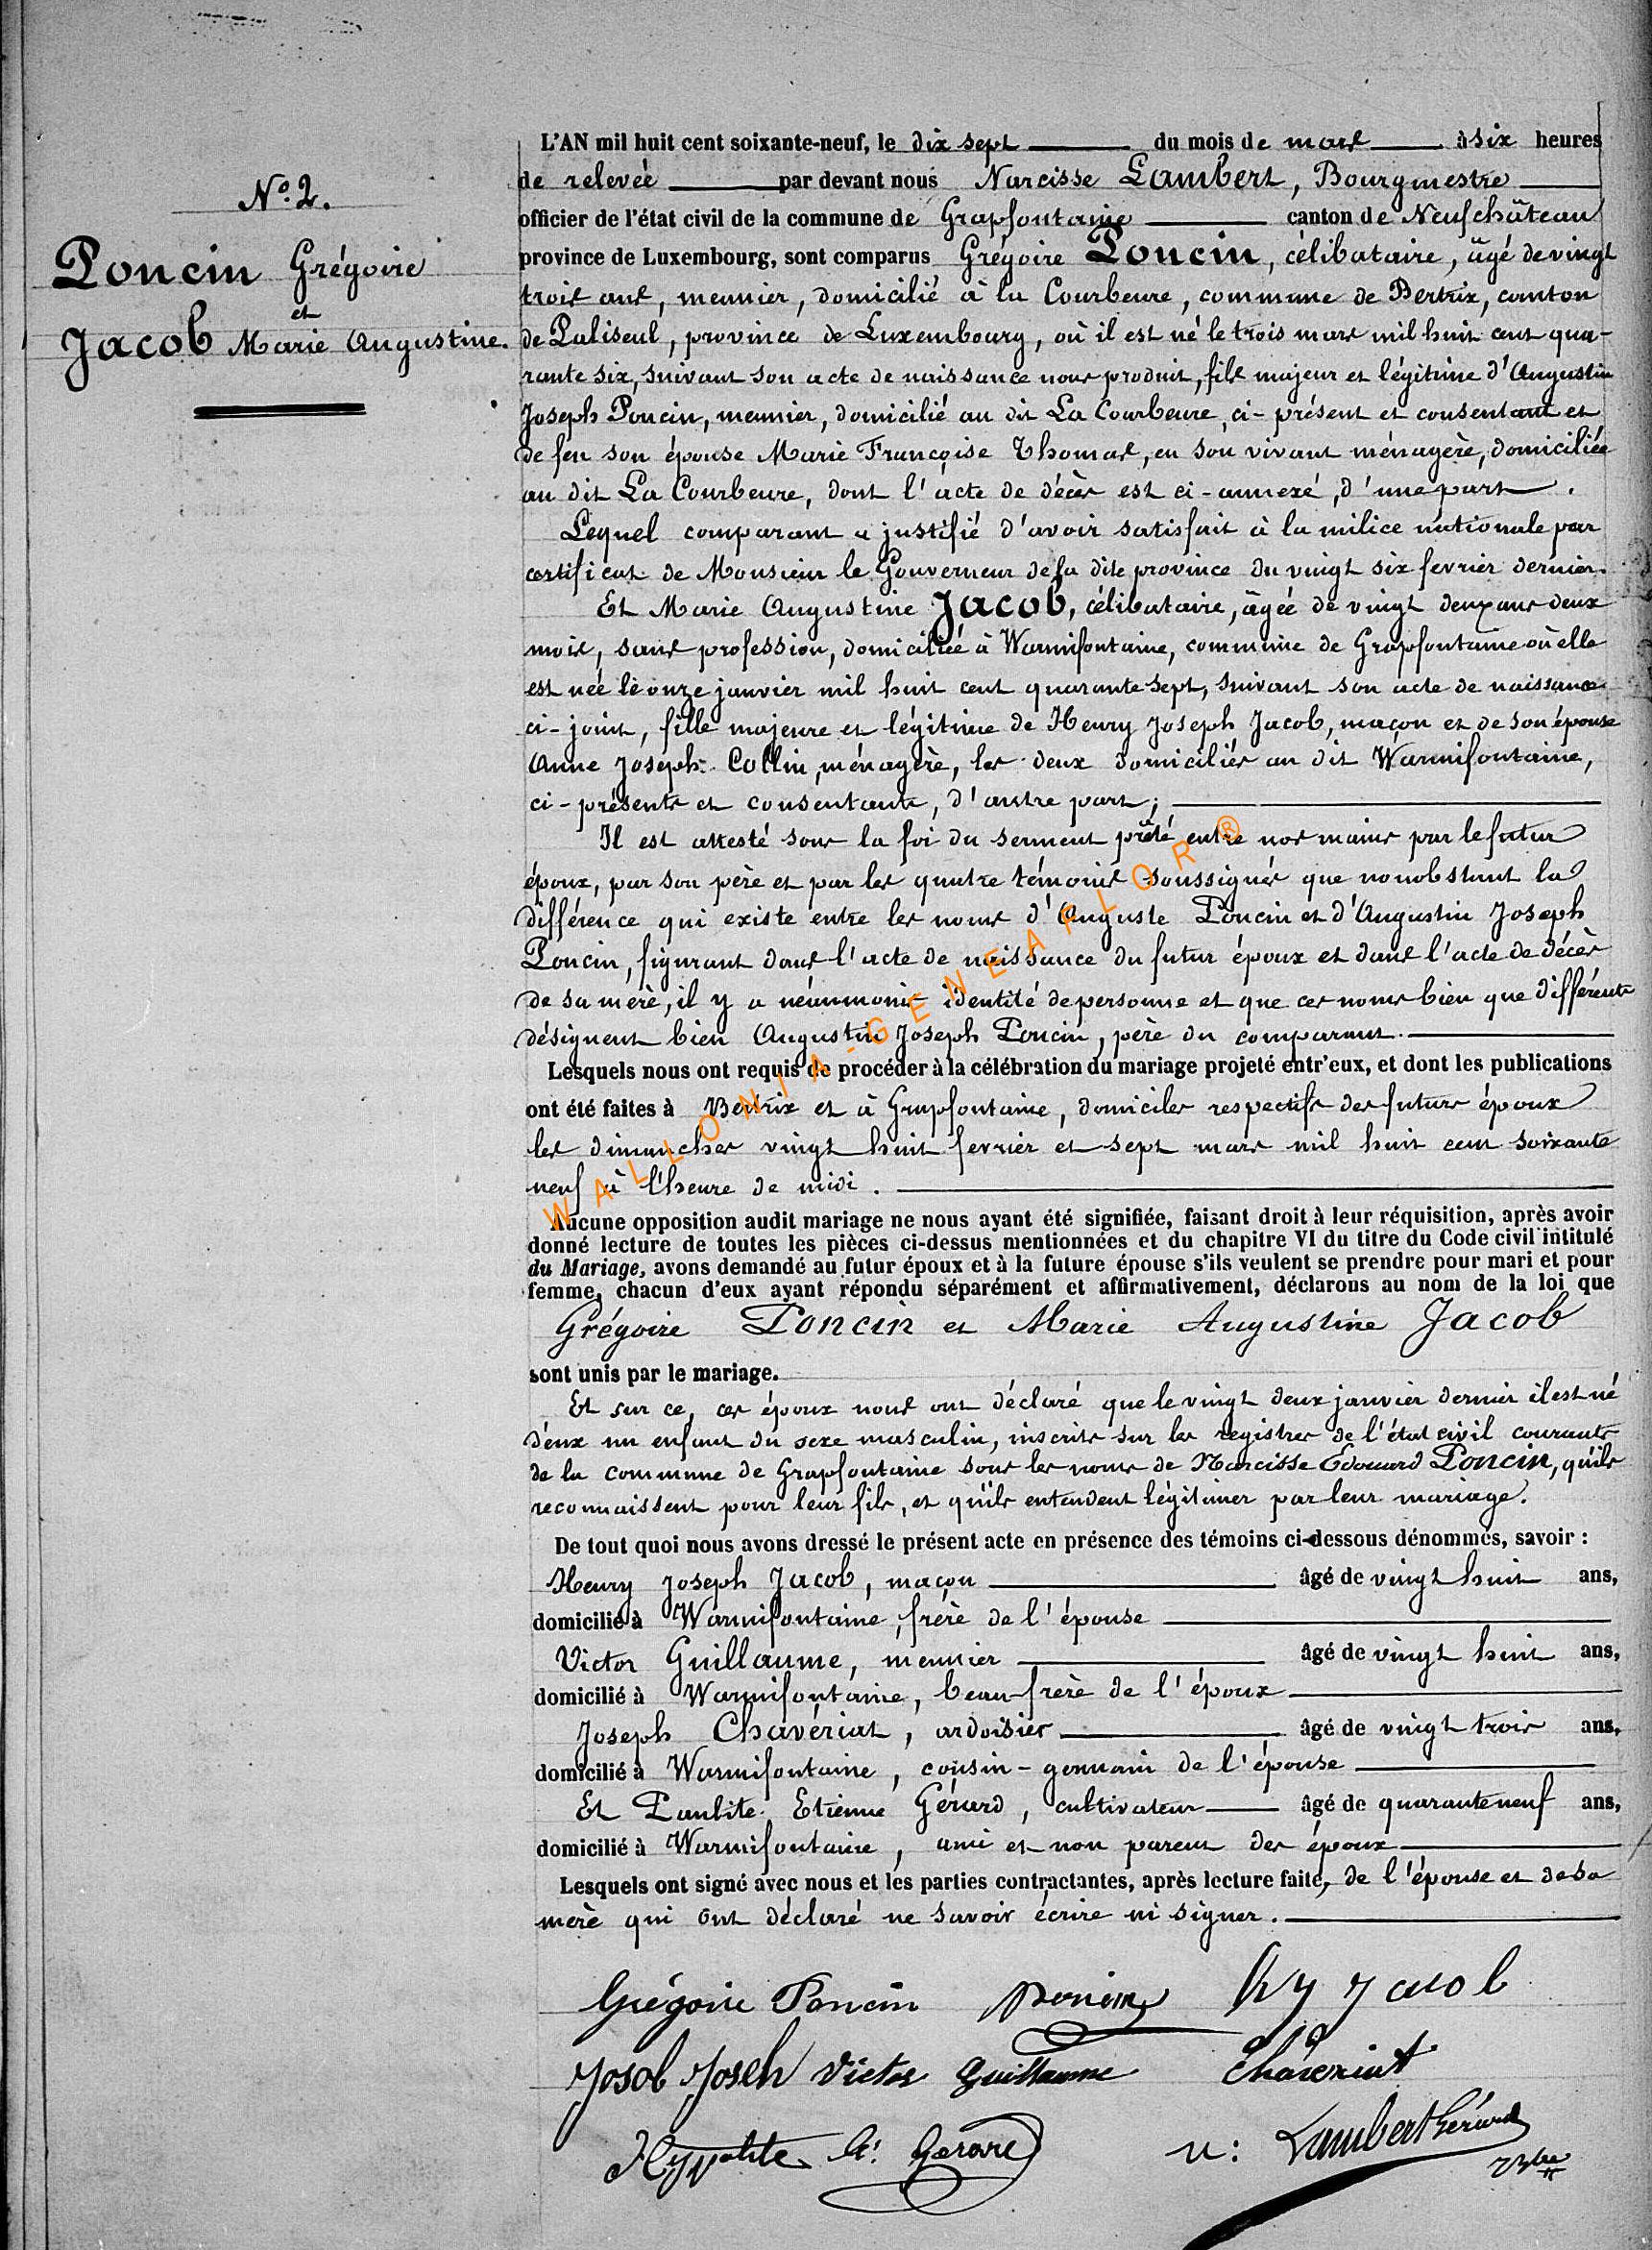 N° 2.
Poncin Grégoire
et
Jacob Marie Augustine.
L'AN mil huit cent soixante-neuf, le dix sept du mois de mars à six heures
de relevée par devant nous Narcisse Lambert, Bourgmestre
officier de l'état civil de la commune de Grapfontaine canton de Neufchâteau
province de Luxembourg, sont comparus Grégoire Poncin, célibataire, âgé de vingt
trois ans, meunier, domicilié à la Courbeure, commune de Bertrix, canton
de Paliseul, province de Luxembourg, où il est né le trois mars mil huit cent qua-
rante six, suivant son acte de naissance nous produit, fils majeur et légitime d'Augustin
Joseph Poncin, meunier, domicilié au dit La Courbeure, ci-présent et consentant et
de feu son épouse Marie Françoise Thomas, en son vivant ménagère, domiciliée
au dit La Courbeure, dont l'acte de décès est ci-annexé, d'une part.
Lequel comparant a justifié d'avoir satisfait à la milice nationale par
certificat de Monsieur le Gouverneur de la dite province du vingt six fevrier dernier.
Et Marie Augustine Jacob, célibataire, âgée de vingt deux ans deux
mois, sans profession, domiciliée à Warmifontaine, commune de Grapfontaine où elle
est née le onze janvier mil huit cent quarante sept, suivant son acte de naissance
ci-joint, fille majeure et légitime de Henry Joseph Jacob, maçon et de son épouse
Anne Joseph Collin, ménagère, les deux domiciliés au dit Warmifontaine,
ci-présents et consentants, d'autre part;
Il est attesté sous la foi du serment prêté entre nos mains par le futur
époux, par son père et par les quatre témoins soussignés que nonobstant la
différence qui existe entre les noms d'Auguste Poncin et d'Augustin Joseph
Poncin, figurant dans l'acte de naissance du futur époux et dans l'acte de décès
de sa mère, il y a néanmoins identité de personne et que ces noms bien que différents
désignent bien Augustin Joseph Poncin, père du comparant.
Lesquels nous ont requis de procéder à la célébration du mariage projeté entr'eux, et dont les publications
ont été faites à Bertrix et à Grapfontaine, domiciles respectifs des futurs époux
les dimanches vingt huit fevrier et sept mars mil huit cent soixante
neuf à l'heure de midi.
WALLONIA-GENEAFLOR®
Aucune opposition audit mariage ne nous ayant été signifiée, faisant droit à leur réquisition, après avoir
donné lecture de toutes les pièces ci-dessus mentionnées et du chapitre VI du titre du Code civil intitulé
du Mariage, avons demandé au futur époux et à la future épouse s'ils veulent se prendre pour mari et pour
femme, chacun d'eux ayant répondu séparément et affirmativement, déclarons au nom de la loi que
Grégoire Poncin et Marie Augustine Jacob
sont unis par le mariage.
Et sur ce, ces époux nous ont déclaré que le vingt deux janvier dernier il est né
d'eux un enfant du sexe masculin, inscrits sur les registres de l'état civil courants
de la commune de Grapfontaine sous les noms de Narcisse Edouard Poncin, qu'ils
reconnaissent pour leur fils, et qu'ils entendent légitimer par leur mariage.
De tout quoi nous avons dressé le présent acte en présence des témoins ci-dessous dénommés, savoir :
Henry Joseph Jacob, maçon âgé de vingt huit ans,
domicilié à Warmifontaine, frère de l'épouse
Victor Guillaume, meunier âgé de vingt huit ans,
domicilié à Warmifontaine, beau-frère de l'époux
Joseph Chavériat, ardoisier âgé de vingt trois ans,
domicilié à Warmifontaine, cousin-germain de l'épouse
Et Etienne Gérard, cultivateur âgé de quarante neuf ans,
domicilié à Warmifontaine, ami et non parent des époux
Lesquels ont signé avec nous et les parties contractantes, après lecture faite, de l'épouse et de sa
mère qui ont déclaré ne savoir écrire ni signer.
Grégoire Poncin Poncin hy jacob
Josob Joseh Victor Guillaume Chaveriat
Hyppolite Gerard N: Lambert Gérard